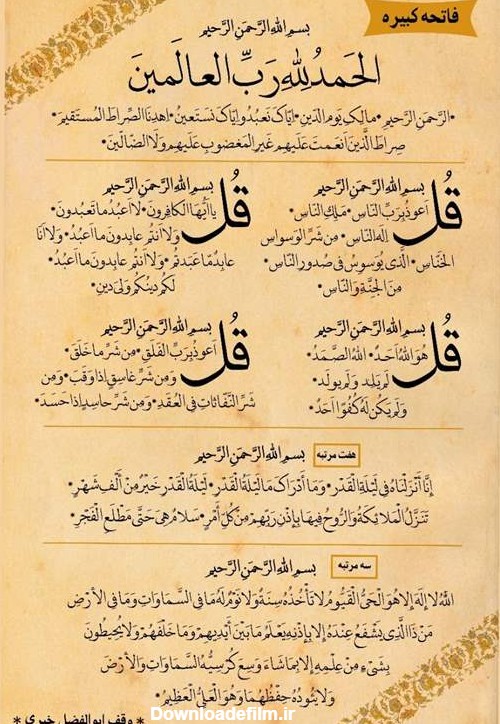 فاتحه کبیره
بسم الله الرحمن الرحیم
الحمدلله رب العالمین
•الرحمن الرحیم• مالک یوم الدین• ایاک نعبد و ایاک نستعین• اهدنا الصراط المستقیم•
صراط الذین انعمت علیهم غیر المغضوب علیهم ولا الضالین•
بسم الله الرحمن الرحیم
قل اعوذ برب الناس• ملک الناس•
اله الناس• من شر الوسواس
الخناس• الذی یوسوس فی صدور الناس•
من الجنة والناس•
بسم الله الرحمن الرحیم
قل یا ایها الکافرون• لا اعبد ما تعبدون•
ولا انتم عابدون ما اعبد• ولا انا
عابد ما عبدتم• ولا انتم عابدون ما اعبد•
لکم دینکم ولی دین•
بسم الله الرحمن الرحیم
قل هو الله احد• الله الصمد•
لم یلد ولم یولد•
ولم یکن له کفوا احد•
بسم الله الرحمن الرحیم
قل اعوذ برب الفلق• من شر ما خلق•
ومن شر غاسق اذا وقب• ومن
شر النفاثات فی العقد• ومن شر حاسد اذا حسد•
هفت مرتبه
بسم الله الرحمن الرحیم
انا انزلناه فی لیلة القدر• وما ادراک ما لیلة القدر• لیلة القدر خیر من الف شهر•
تنزل الملائکة والروح فیها باذن ربهم من کل امر• سلام هی حتی مطلع الفجر•
سه مرتبه
بسم الله الرحمن الرحیم
الله لا اله الا هو الحی القیوم لا تأخذه سنة ولا نوم له ما فی السماوات وما فی الارض
من ذا الذی یشفع عنده الا باذنه یعلم ما بین ایدیهم وما خلفهم ولا یحیطون
بشیء من علمه الا بما شاء وسع کرسیه السماوات والارض
ولا یئوده حفظهما وهو العلی العظیم•
* وقف ابوالفضل خیری *
Downloadefilm.ir